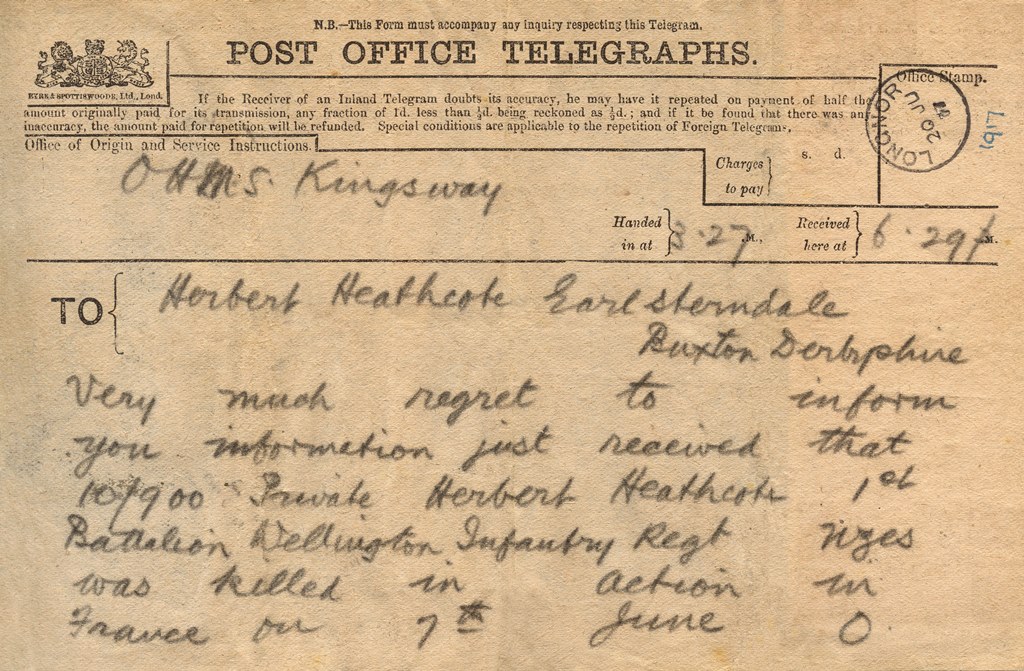 N.B.—This Form must accompany any inquiry respecting this Telegram.
POST OFFICE TELEGRAPHS.
EYRE & SPOTTISWOODE, Ltd., Lond.
If the Receiver of an Inland Telegram doubts its accuracy, he may have it repeated on payment of half the
amount originally paid for its transmission, any fraction of 1d. less than ½d. being reckoned as ½d.; and if it be found that there was any
inaccuracy, the amount paid for repetition will be refunded. Special conditions are applicable to the repetition of Foreign Telegrams.
Office Stamp.
LONGNOR
20 JU
17
1917
Office of Origin and Service Instructions.
OHMS. Kingsway
Charges
to pay
s. d.
Handed
in at
3.27 M.,
Received
here at
6.29 M.
TO
Herbert Heathcote Earlsterndale
Buxton Derbyshire
Very much regret to inform
you information just received that
10/900 Private Herbert Heathcote 1st
Battalion Wellington Infantry Regt Nzes
was killed in action in
France on 7th June O